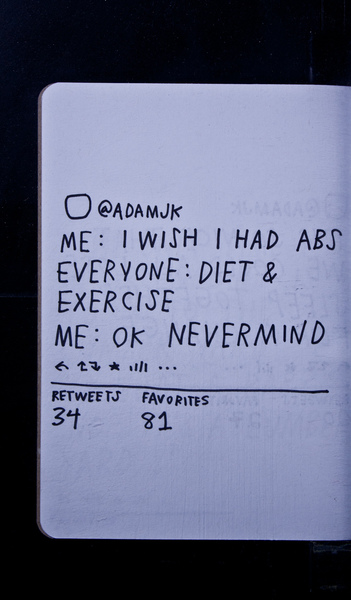 @ADAMJK
ME: I WISH I HAD ABS
EVERYONE: DIET &
EXERCISE
ME: OK NEVERMIND
RETWEETS FAVORITES
34 81